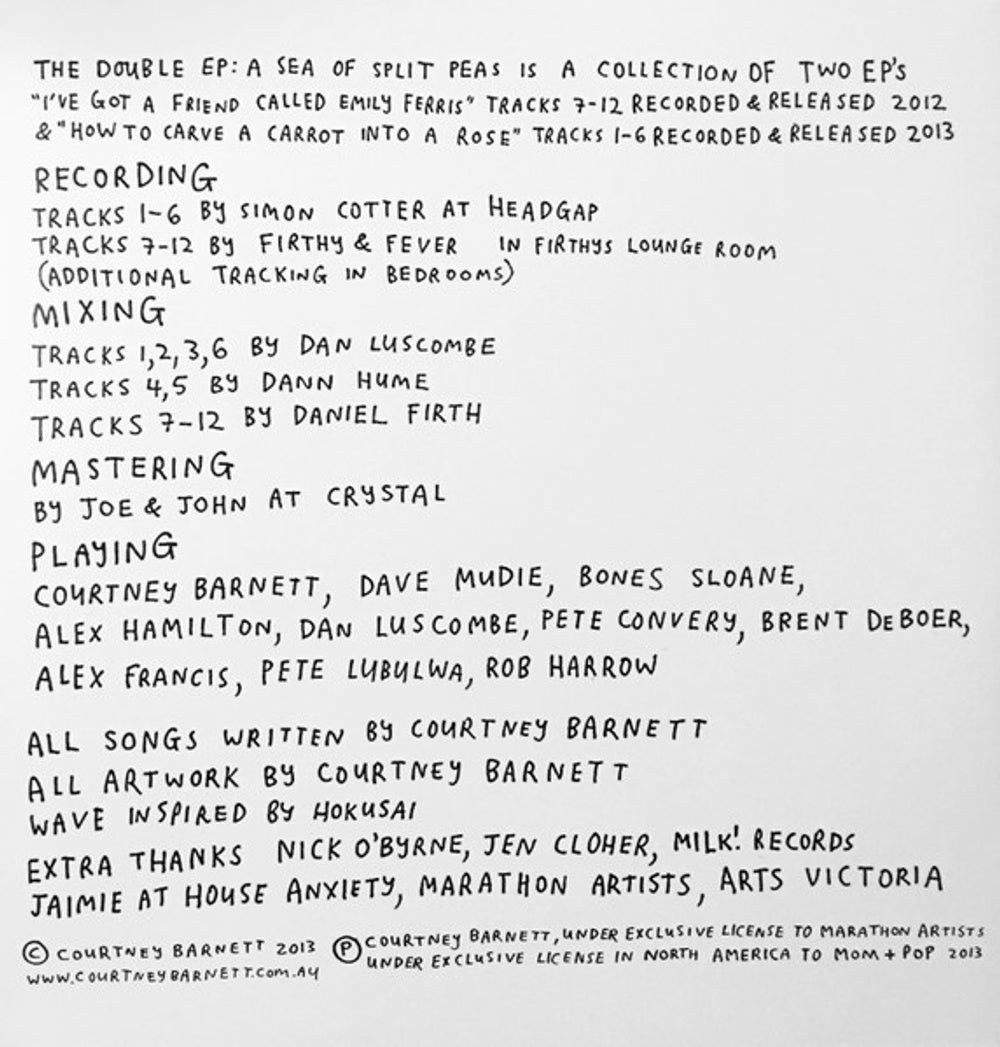 THE DOUBLE EP: A SEA OF SPLIT PEAS IS A COLLECTION OF TWO EP'S
"I'VE GOT A FRIEND CALLED EMILY FERRIS" TRACKS 7-12 RECORDED & RELEASED 2012
& "HOW TO CARVE A CARROT INTO A ROSE" TRACKS 1-6 RECORDED & RELEASED 2013
RECORDING
TRACKS 1-6 BY SIMON COTTER AT HEADGAP
TRACKS 7-12 BY FIRTHY & FEVER IN FIRTHYS LOUNGE ROOM
(ADDITIONAL TRACKING IN BEDROOMS)
MIXING
TRACKS 1,2,3,6 BY DAN LUSCOMBE
TRACKS 4,5 BY DANN HUME
TRACKS 7-12 BY DANIEL FIRTH
MASTERING
BY JOE & JOHN AT CRYSTAL
PLAYING
COURTNEY BARNETT, DAVE MUDIE, BONES SLOANE,
ALEX HAMILTON, DAN LUSCOMBE, PETE CONVERY, BRENT DeBOER,
ALEX FRANCIS, PETE LUBULWA, ROB HARROW
ALL SONGS WRITTEN BY COURTNEY BARNETT
ALL ARTWORK BY COURTNEY BARNETT
WAVE INSPIRED BY HOKUSAI
EXTRA THANKS NICK O'BYRNE, JEN CLOHER, MILK! RECORDS
JAIMIE AT HOUSE ANXIETY, MARATHON ARTISTS, ARTS VICTORIA
© COURTNEY BARNETT 2013
WWW.COURTNEYBARNETT.COM.AU
℗ COURTNEY BARNETT, UNDER EXCLUSIVE LICENSE TO MARATHON ARTISTS
UNDER EXCLUSIVE LICENSE IN NORTH AMERICA TO MOM + POP 2013